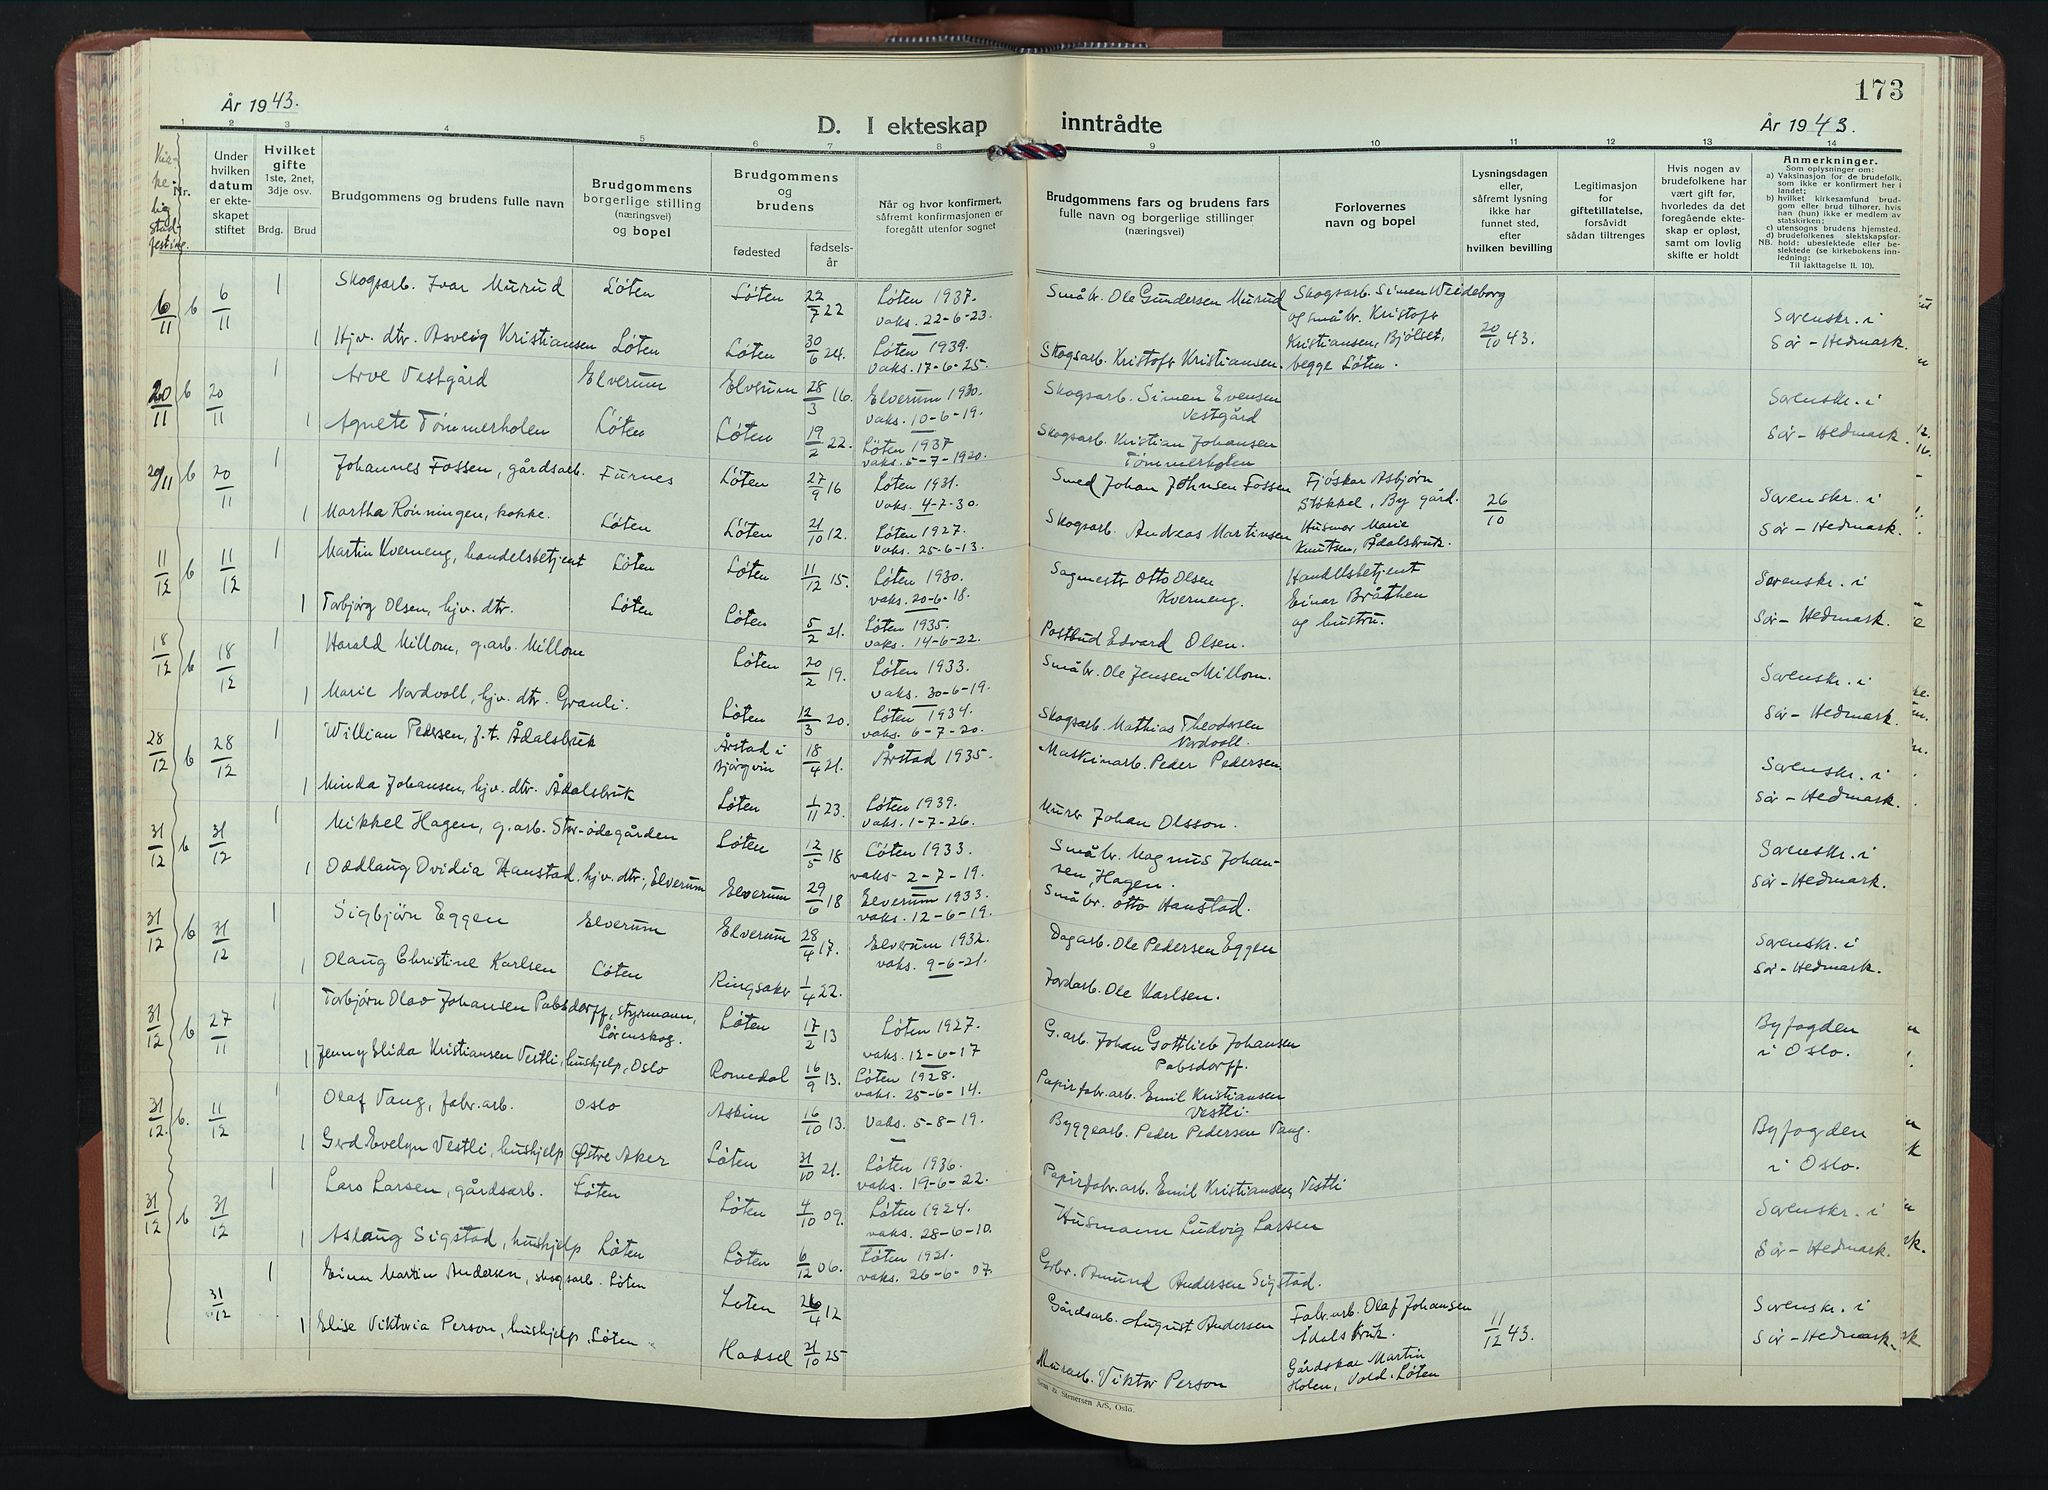 År 1943.
D. I ekteskap
inntrådte
173
År 1943.
1 2 3 4 5 6 7 8 9 10 11 12 13 14
Kir-
ke-
lig
stad-
festing.
Nr.
Under
hvilken
datum
er ekte-
skapet
stiftet
Hvilket
gifte
1ste, 2net,
3dje osv.
Brdg. Brud
Brudgommens og brudens fulle navn
Brudgommens
borgerlige stilling
(næringsvei)
og bopel
Brudgommens
og
brudens
fødested
fødsels-
år
Når og hvor konfirmert,
såfremt konfirmasjonen er
foregått utenfor sognet
Brudgommens fars og brudens fars
fulle navn og borgerlige stillinger
(næringsvei)
Forlovernes
navn og bopel
Lysningsdagen
eller,
såfremt lysning
ikke har
funnet sted,
efter
hvilken bevilling
Legitimasjon
for
giftetillatelse,
forsåvidt
sådan tiltrenges
Hvis nogen av
brudefolkene har
vært gift før,
hvorledes da det
foregående ekte-
skap er opløst,
samt om lovlig
skifte er holdt
Anmerkninger.
Som oplysning om:
a) Vaksinasjon for de brudefolk,
som ikke er konfirmert her i
landet;
b) hvilket kirkesamfund brud-
gom eller brud tilhører, hvis
han (hun) ikke er medlem av
statskirken;
c) utensogns brudens hjemsted.
d) brudefolkenes slektskapsfor-
NB. hold: ubeslektede eller be-
slektede (se kirkebokens inn-
ledning:
Til iakttagelse II. 10).
6/11 b 6/11 1 Skogsarb. Ivar Murud Løten Løten 22/7 22 Løten 1937.
vaks. 22-6-23.
Småbr. Ole Gundersen Murud
Skogsarb. Simen Weideborg
og småbr. Kristofr
Kristiansen, Bjølset,
begge Løten.
20/10 43.
Sorenskr. i
Sør-Hedmark.
1 Hjv. dtr. Asveig Kristiansen Løten Løten 30/6 24. Løten 1939.
vaks. 17-6-25.
Skogsarb. Kristofr Kristiansen.
20/11 b 20/11 1 Arve Vestgård Elverum Elverum 28/3 16. Elverum 1930.
vaks. 10-6-19.
Skogsarb. Simen Evensen
Vestgård
Sorenskr. i
Sør-Hedmark.
1 Agnete Tømmerholen Løten Løten 19/2 22. Løten 1937
vaks. 5-7-1920.
Skogsarb. Kristian Johansen
Tømmerholen
20/11 b 20/11 1 Johannes Fossen, gårdsarb. Furnes Løten 27/9 16 Løten 1931.
vaks. 4-7-30.
Smed Johan Johnsen Fossen
Fjøskar Asbjørn
Støkkel, By gård.
Husmor Marie
Knutsen, Ådalsbruk.
26/10
Sorenskr. i
Sør-Hedmark.
1 Martha Rønningen, kokke. Løten Løten 21/10 12. Løten 1927.
vaks. 25-6-13.
Skogsarb. Andreas Martinsen
11/12 b 11/12 1 Martin Kverneng, handelsbetjent Løten Løten 11/12 15. Løten 1930.
vaks. 20-6-18.
Sagmestr Otto Olsen
Kverneng.
Handelsbetjent
Einar Bråthen
og hustru.
Sorenskr. i
Sør-Hedmark.
1 Torbjørg Olsen, hjv. dtr. Løten Løten 5/2 21. Løten 1935
vaks. 14-6-22.
Postbud Edvard Olsen.
18/12 b 18/12 1 Harald Millom, g.arb. Millom Løten 20/2 19. Løten 1933.
vaks. 30-6-19.
Småbr. Ole Jensen Millom.
Sorenskr. i
Sør-Hedmark.
1 Marie Nordvoll, hjv. dtr. Granli. Løten 12/3 20. Løten 1934.
vaks. 6-7-20.
Skogsarb. Mathias Theodorsen
Nordvoll.
28/12 b 28/12 1 Willian Pedersen, f.t. Ådalsbruk Årstad i
Bjørgvin 18/4 21. Årstad 1935.
Maskinarb. Peder Pedersen.
Sorenskr. i
Sør-Hedmark.
1 Minda Johansen, hjv. dtr. Ådalsbruk Løten 1/11 23. Løten 1939.
vaks. 1-7-26.
Murer Johan Olsson.
31/12 b 31/12 1 Mikkel Hagen, g.arb. Stor-ødegården Løten 12/5 18 Løten 1933.
vaks- 2-7-19.
Småbr. Magnus Johan-
sen, Hagen.
Sorenskr. i
Sør-Hedmark.
1 Oddlaug Ovidia Hanstad, hjv. dtr., Elverum Elverum 29/6 18 Elverum 1933.
vaks. 12-6-19.
Småbr. Otto Hanstad.
31/12 b 31/12 1 Sigbjørn Eggen Elverum Elverum 28/4 17. Elverum 1932.
vaks. 9-6-21.
Dagarb. Ole Pedersen Eggen
Sorenskr. i
Sør-Hedmark.
1 Olaug Christine Karlsen Løten Ringsaker 1/4 22.
Jordarb. Ole Karlsen.
31/12 b 27/11 1 Torbjørn Olav Johansen Pabsdorff, styrmann,
Lørenskog. Løten 17/2 13 Løten 1927.
vaks. 12-6-17
G.arb. Johan Gottlieb Johansen
Pabsdorff.
Byfogden
i Oslo.
1 Jenny Elida Kristiansen Vestli, hushjelp, Oslo Romedal 16/9 13. Løten 1928.
vaks. 25-6-14.
Papirfabr.arb. Emil Kristiansen
Vestli.
31/12. b. 11/12 1 Olaf Vang, fabr.arb. Oslo Askim 16/10 13. Vaks. 5-8-19.
Byggearb. Peder Pedersen Vang.
Byfogden
i Oslo.
1 Gerd Evelyn Vestli, hushjelp Østre Aker Løten 31/10 21. Løten 1936.
vaks. 19-6-22.
Papirfabr.arb. Emil Kristiansen, Vestli
31/12 b 31/12 1 Lars Larsen, gårdsarb. Løten Løten 4/10 09. Løten 1924.
vaks. 28-6-10.
Husmann Ludvig Larsen
Sorenskr. i
Sør-Hedmark.
1 Aslaug Sigstad, hushjelp Løten Løten 6/12 06. Løten 1921.
vaks. 26-6-07.
Grbr. Amund Andersen Sigstad.
31/12 1 Einar Martin Andersen, skogsarb. Løten Løten 26/4 12
Gårdsarb. August Andersen
Fabr.arb. Olaf Johansen
Ådalsbruk.
Gårdskar Martin
Holen, Vold. Løten
11/12 43.
Sorenskr. i
Sør-Hedmark.
1 Elise Viktoria Person, hushjelp, Løten Hadsel 21/10 25
Murarb. Viktor Person
Sem & Stenersen A/S, Oslo.